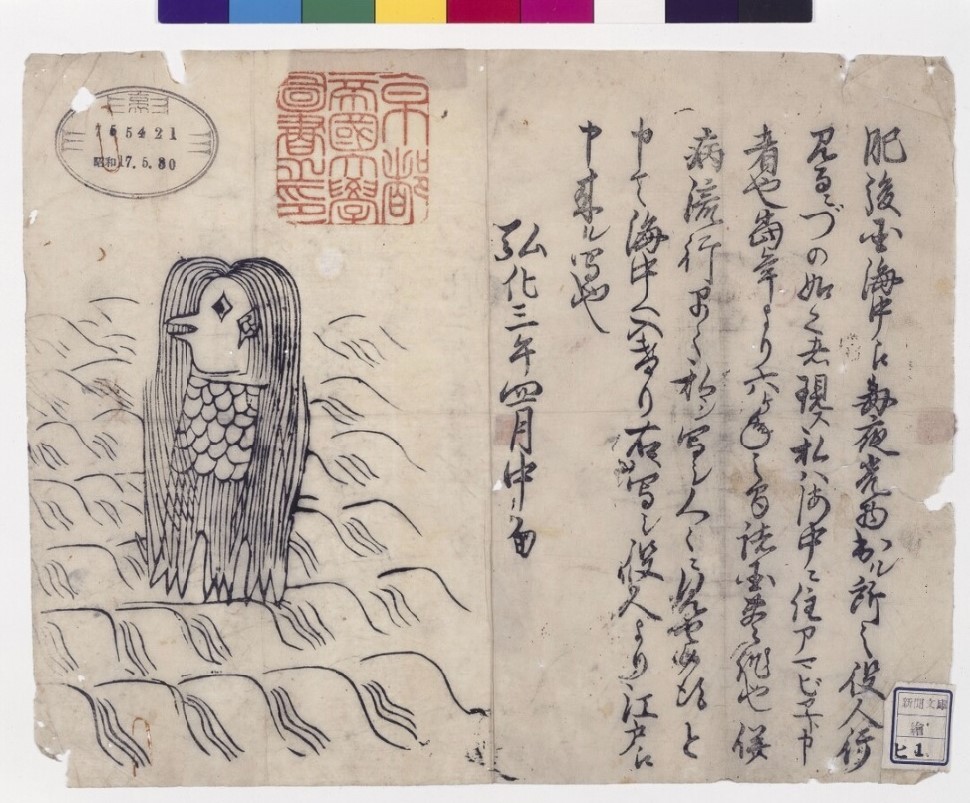 肥後国海中え毎夜光物出ル所之役人行
見るニづの如く者現ス私ハ海中ニ住アマビヱト申
者也当年より六ヶ年之間諸国豊作也併
病流行早々私シ写シ人々ニ見せ候得と
申て海中へ入けり右写シ役人より江戸え
申来ル写也
弘化三年四月中旬
京都
帝國大學
圖書之印
昭和17.5.30
新聞文庫
繪
ヒ 1